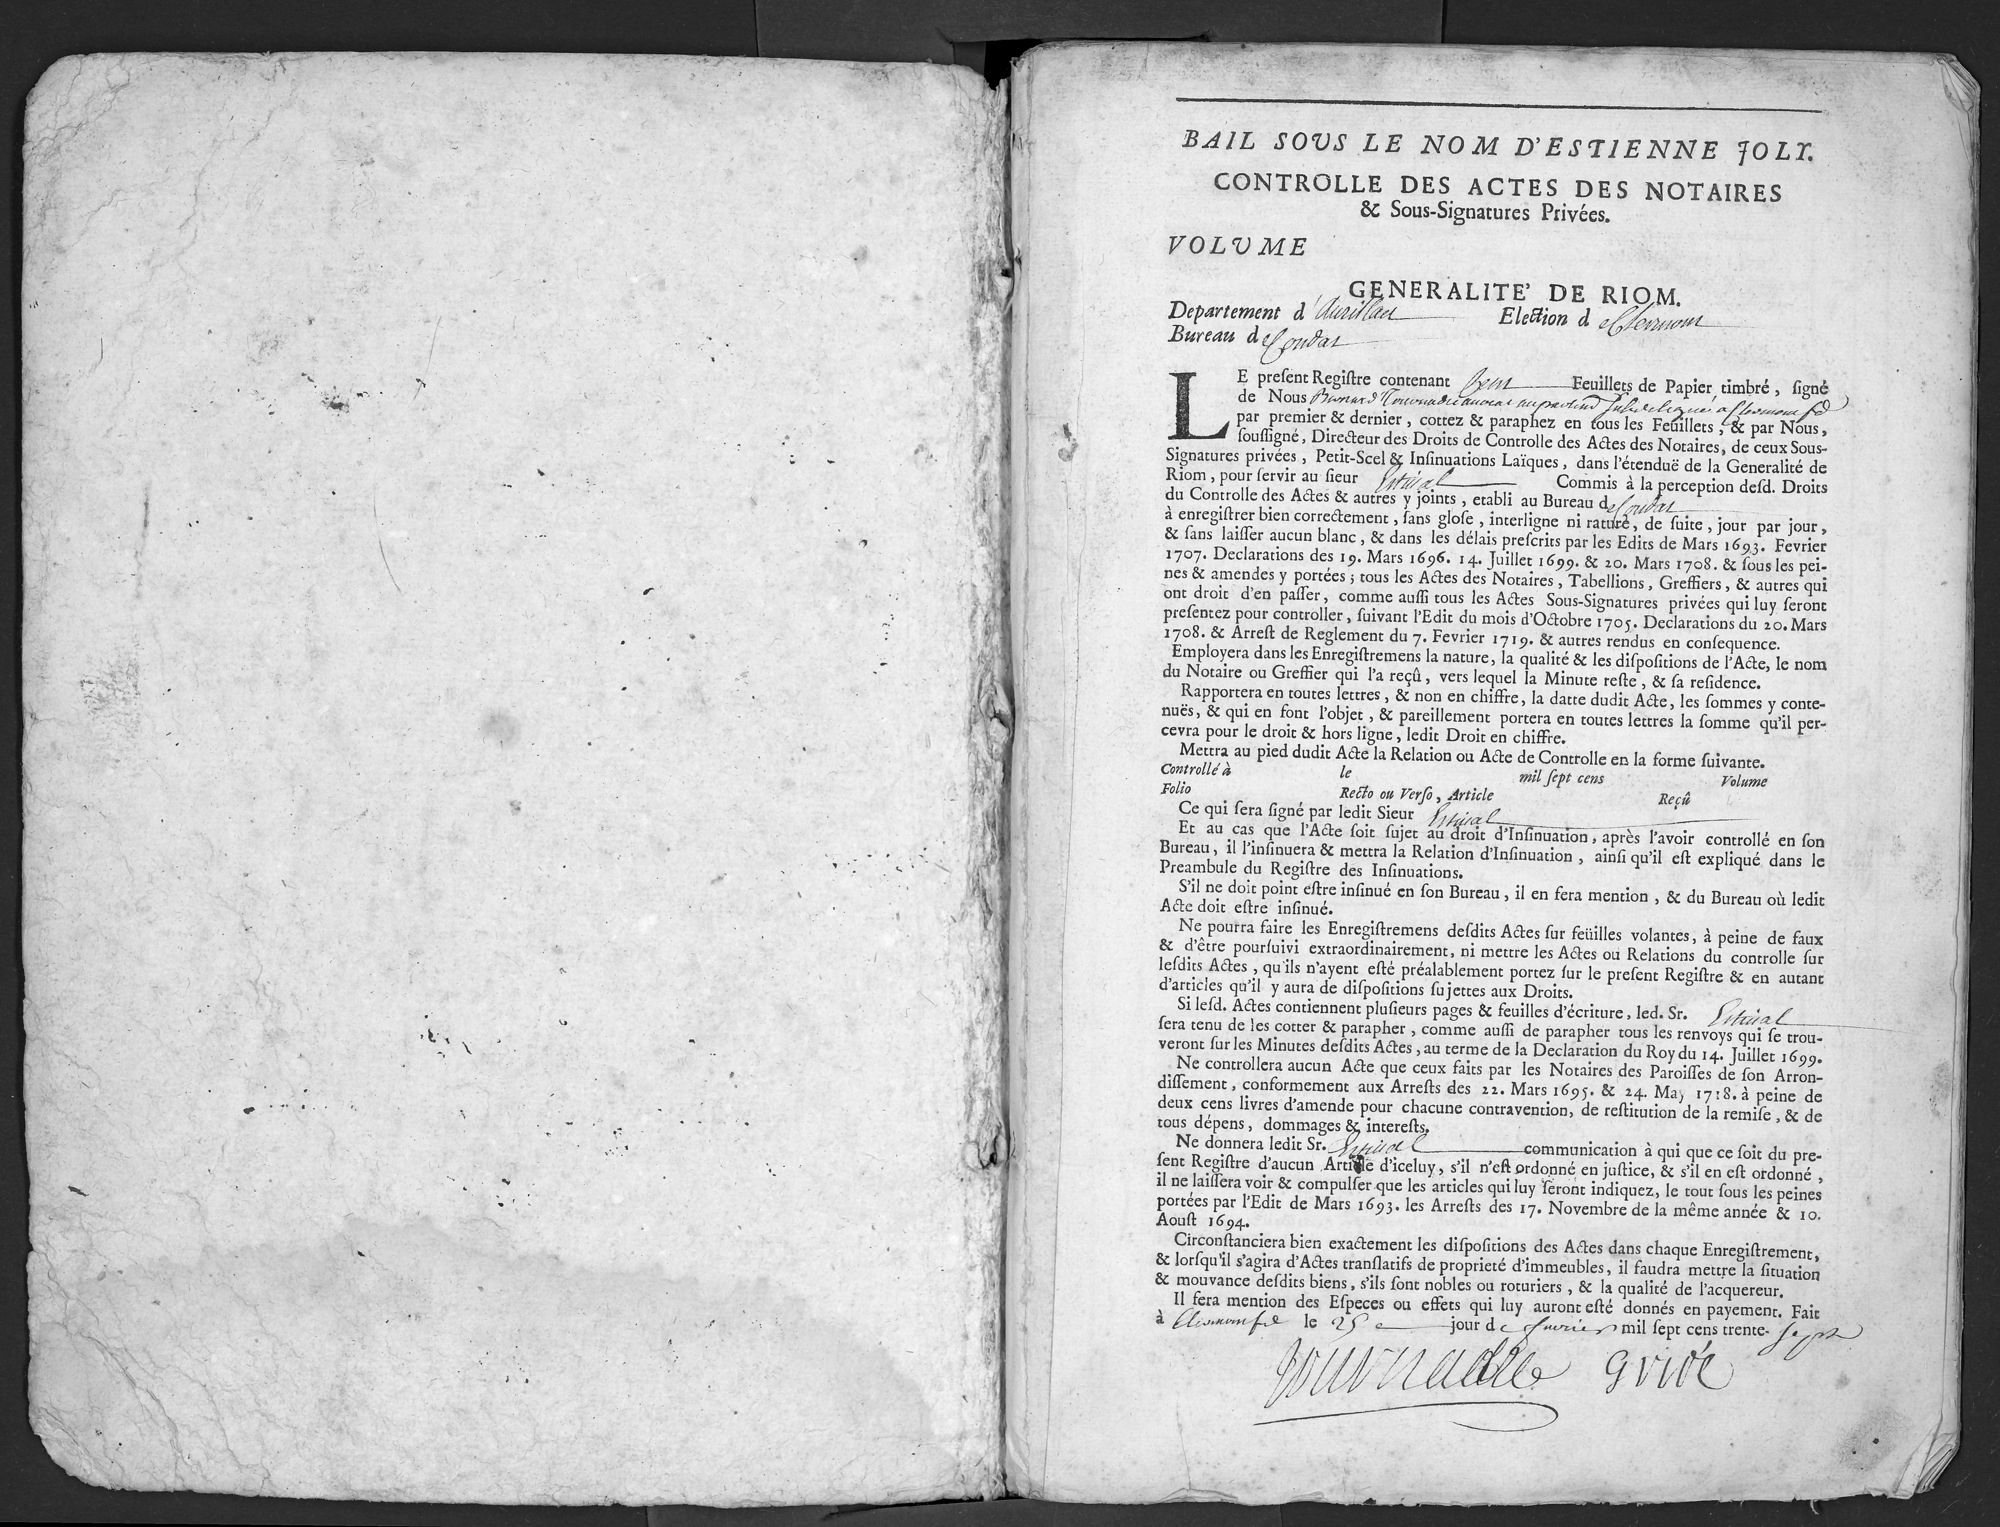 BAIL SOUS LE NOM D'ESTIENNE JOLY.
CONTROLLE DES ACTES DES NOTAIRES
& Sous-Signatures Privées.
VOLUME
GENERALITE' DE RIOM.
Departement d'Aurillac Election de Clermont
Bureau de Condat
LE preſent Regiſtre contenant Feuillets de Papier timbré, ſigné
de Nous Bernard Tournadre avocat en parlement Subdelegué a Clermont fd
par premier & dernier, cottez & paraphez en tous les Feuillets, & par Nous,
ſouſſigné, Directeur des Droits de Controlle des Actes des Notaires, de ceux Sous-
Signatures privées, Petit-Scel & Inſinuations Laïques, dans l'étenduë de la Generalité de
Riom, pour ſervir au ſieur Estival Commis à la perception deſd. Droits
du Controlle des Actes & autres y joints, etabli au Bureau de Condat
à enregiſtrer bien correctement, ſans gloſe, interligne ni rature, de ſuite, jour par jour,
& ſans laiſſer aucun blanc, & dans les délais preſcrits par les Edits de Mars 1693. Fevrier
1707. Declarations des 19. Mars 1696. 14. Juillet 1699. & 20. Mars 1708. & ſous les pei-
nes & amendes y portées; tous les Actes des Notaires, Tabellions, Greffiers, & autres qui
ont droit d'en paſſer, comme auſſi tous les Actes Sous-Signatures privées qui luy ſeront
preſentez pour controller, ſuivant l'Edit du mois d'Octobre 1705. Declarations du 20. Mars
1708. & Arreſt de Reglement du 7. Fevrier 1719. & autres rendus en conſequence.
Employera dans les Enregiſtremens la nature, la qualité & les diſpoſitions de l'Acte, le nom
du Notaire ou Greffier qui l'a reçû, vers lequel la Minute reſte, & ſa reſidence.
Rapportera en toutes lettres, & non en chiffre, la datte dudit Acte, les ſommes y conte-
nuës, & qui en font l'objet, & pareillement portera en toutes lettres la ſomme qu'il per-
cevra pour le droit & hors ligne, ledit Droit en chiffre.
Mettra au pied dudit Acte la Relation ou Acte de Controlle en la forme ſuivante.
Controllé à le mil ſept cens Volume
Folio Recto ou Verſo, Article Reçû
Ce qui ſera ſigné par ledit Sieur Estival
Et au cas que l'Acte ſoit ſujet au droit d'Inſinuation, après l'avoir controllé en ſon
Bureau, il l'inſinuera & mettra la Relation d'Inſinuation, ainſi qu'il eſt expliqué dans le
Preambule du Regiſtre des Inſinuations.
S'il ne doit point eſtre inſinué en ſon Bureau, il en ſera mention, & du Bureau où ledit
Acte doit eſtre inſinué.
Ne pourra faire les Enregiſtremens deſdits Actes ſur feüilles volantes, à peine de faux
& d'être pourſuivi extraordinairement, ni mettre les Actes ou Relations du controlle ſur
leſdits Actes, qu'ils n'ayent eſté préalablement portez ſur le preſent Regiſtre & en autant
d'articles qu'il y aura de diſpoſitions ſujettes aux Droits.
Si leſd. Actes contiennent pluſieurs pages & feuilles d'écriture, led. Sr. Estival
ſera tenu de les cotter & parapher, comme auſſi de parapher tous les renvoys qui ſe trou-
veront ſur les Minutes deſdits Actes, au terme de la Declaration du Roy du 14. Juillet 1699.
Ne controllera aucun Acte que ceux faits par les Notaires des Paroiſſes de ſon Arron-
diſſement, conformement aux Arreſts des 22. Mars 1695. & 24. May 1718. à peine de
deux cens livres d'amende pour chacune contravention, de reſtitution de la remiſe, & de
tous dépens, dommages & intereſts.
Ne donnera ledit Sr. Estival communication à qui que ce ſoit du pre-
ſent Regiſtre d'aucun Article d'iceluy, s'il n'eſt ordonné en juſtice, & s'il en eſt ordonné,
il ne laiſſera voir & compulſer que les articles qui luy ſeront indiquez, le tout ſous les peines
portées par l'Edit de Mars 1693. les Arreſts des 17. Novembre de la même année & 10.
Aouſt 1694.
Circonſtanciera bien exactement les diſpoſitions des Actes dans chaque Enregiſtrement,
& lorſqu'il s'agira d'Actes tranſlatifs de proprieté d'immeubles, il faudra mettre la ſituation
& mouvance deſdits biens, s'ils ſont nobles ou roturiers, & la qualité de l'acquereur.
Il ſera mention des Eſpeces ou effets qui luy auront eſté donnés en payement. Fait
à Clermont fd le 25 e jour de fevrier mil ſept cens trente-sept
Tournadre